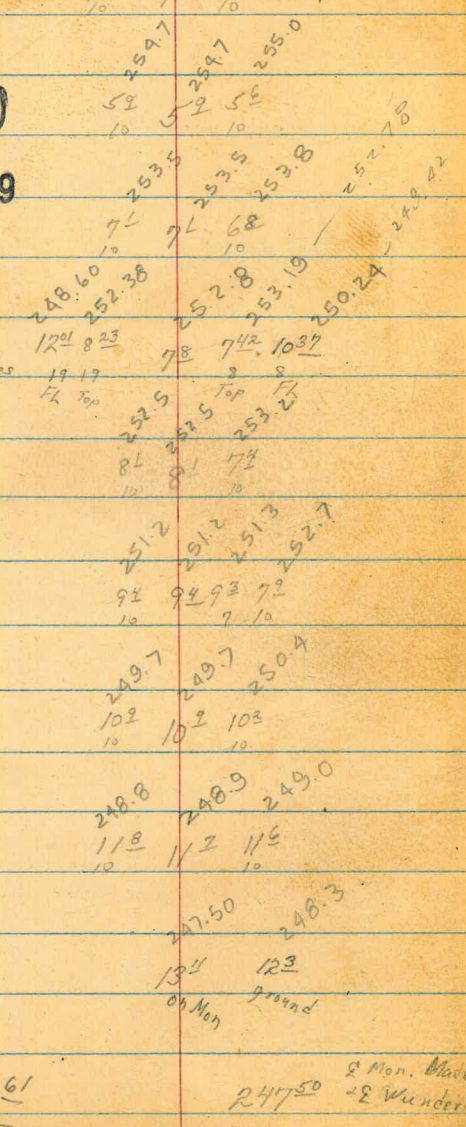 10 10
254.7 254.7 255.0
5 9 5 9 5 6
10 10
253.5 253.5 253.8 252.78
9
7 1 7 1 6 8 249.42
10 10
248.60 252.38 252.8 253.19 250.24
12 01 8 23 7 8 7 42 10 37
19 19 8 8
FL Top Top FL
252.5 252.5 253.2
8 1 8 1 7 4
10 10
251.2 251.2 251.3 252.7
9 4 9 4 9 3 7 9
10 7 10
249.7 249.7 250.4
10 9 10 9 10 2
10 10
248.8 248.9 249.0
11 8 11 7 11 6
10 10
247.50 248.3
13 11 12 3
on Mon ground
61 247 50 Mon.